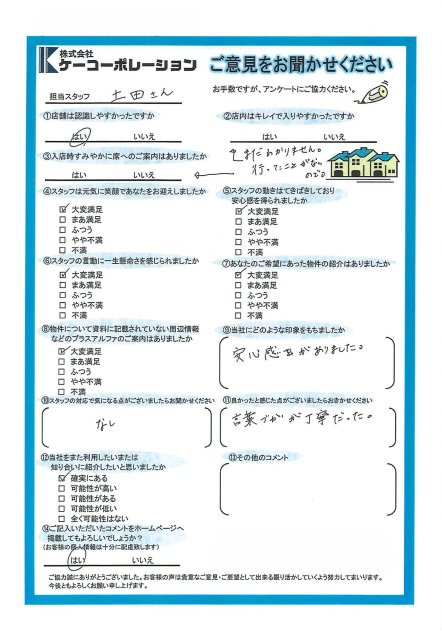 株式会社
ケーコーポレーション
ご意見をお聞かせください
お手数ですが、アンケートにご協力ください。
担当スタッフ 土田さん
①店舗は認識しやすかったですか
はい いいえ
②店内はキレイで入りやすかったですか
はい いいえ
まだわかりません。
行ったことがない
ので。
③入店時すみやかに席へのご案内はありましたか
はい いいえ
④スタッフは元気に笑顔であなたをお迎えしましたか
☑ 大変満足
□ まあ満足
□ ふつう
□ やや不満
□ 不満
⑤スタッフの動きはてきぱきしており
安心感を得られましたか
☑ 大変満足
□ まあ満足
□ ふつう
□ やや不満
□ 不満
⑥スタッフの言動に一生懸命さを感じられましたか
☑ 大変満足
□ まあ満足
□ ふつう
□ やや不満
□ 不満
⑦あなたのご希望にあった物件の紹介はありましたか
☑ 大変満足
□ まあ満足
□ ふつう
□ やや不満
□ 不満
⑧物件について資料に記載されていない周辺情報
などのプラスアルファのご案内はありましたか
☑ 大変満足
□ まあ満足
□ ふつう
□ やや不満
□ 不満
⑨当社にどのような印象をもちましたか
安心感がありました。
⑩スタッフの対応で気になる点がございましたらお聞かせください
なし
⑪良かったと感じた点がございましたらお聞かせください
言葉づかいが丁寧だった。
⑫当社をまた利用したいまたは
知り合いに紹介したいと思いましたか
☑ 確実にある
□ 可能性が高い
□ 可能性がある
□ 可能性が低い
□ 全く可能性はない
⑬その他のコメント
⑭ご記入いただいたコメントをホームページへ
掲載してもよろしいでしょうか?
(お客様の個人情報は十分に配慮致します)
はい いいえ
ご協力誠にありがとうございました。お客様の声は貴重なご意見・ご要望として出来る限り活かしていくよう努力してまいります。
今後ともよろしくお願い申し上げます。